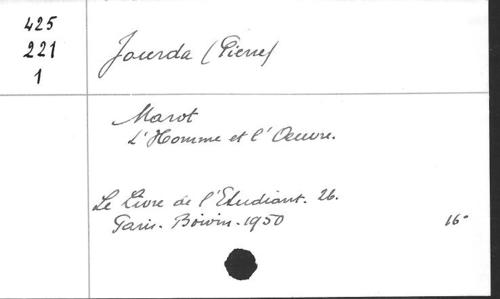 425
221
1
Jourda (Pierre)
Marot
L'Homme et l'Oeuvre.
Le Livre de l'Etudiant. 26.
Paris. Boivin. 1950
16°